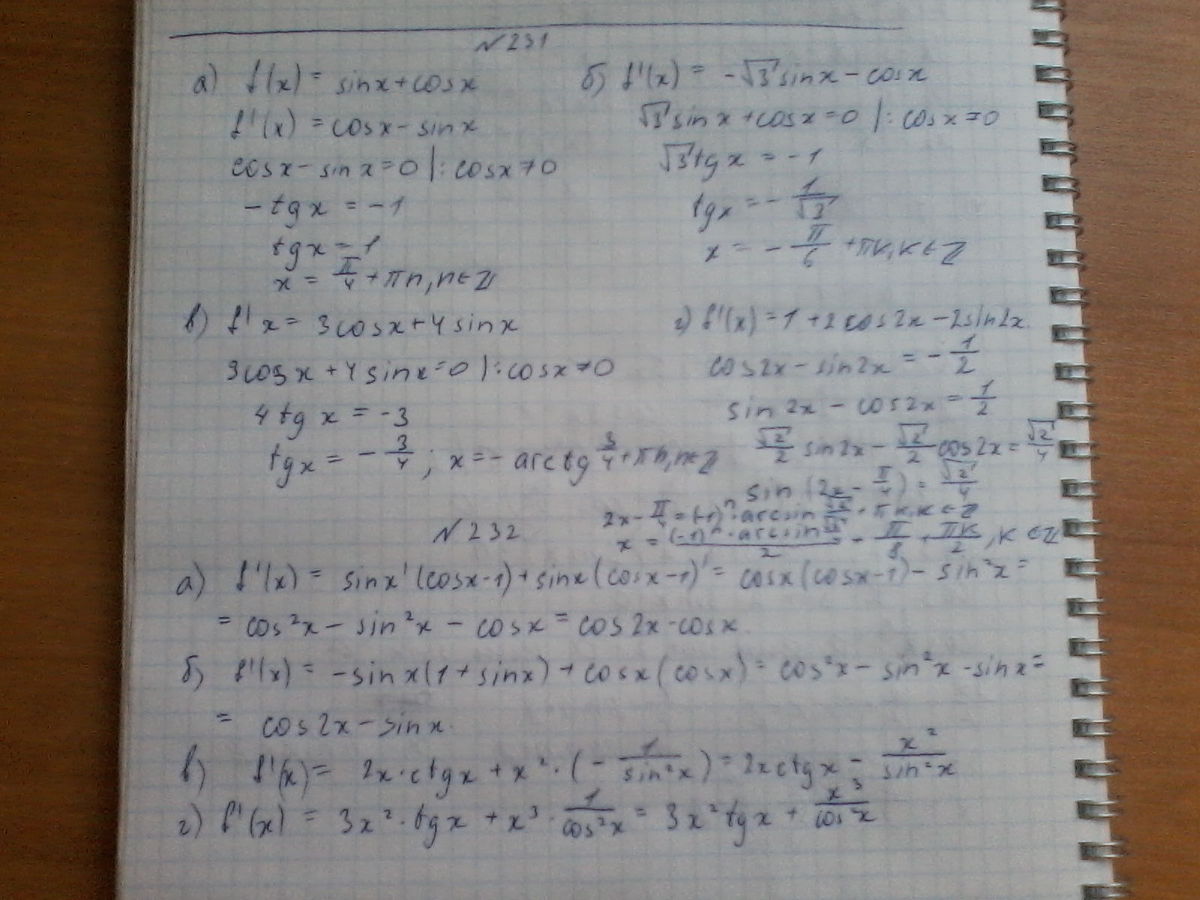 №231
а) f(x) = sinx+cosx
f'(x) = cosx-sinx
cosx-sinx=0 |:cosx≠0
-tgx = -1
tgx = 1
x = π/4 + πn, n∈Z
б) f'(x) = -√3 sinx - cosx
√3 sinx + cosx = 0 |:cosx≠0
√3 tgx = -1
tgx = -1/√3
x = -π/6 + πk, k∈Z
в) f'x = 3cosx+4sinx
3cosx+4sinx=0 |:cosx≠0
4tgx = -3
tgx = -3/4; x = -arctg 3/4 + πn, n∈Z
г) f'(x) = 1+2cos2x-2sin2x.
cos2x-sin2x = -1/2
sin2x - cos2x = 1/2
√2/2 sin2x - √2/2 cos2x = √2/4
sin(2x - π/4) = √2/4
2x - π/4 = (-1)ⁿ·arcsin √2/4 + πk, k∈Z
x = (-1)ⁿ·arcsin √2/4 / 2 + π/8 + πk/2, k∈Z
№232
а) f'(x) = sinx'(cosx-1)+sinx(cosx-1)' = cosx(cosx-1)-sin²x =
= cos²x - sin²x - cosx = cos2x-cosx.
б) f'(x) = -sinx(1+sinx)+cosx(cosx) = cos²x - sin²x - sinx =
= cos2x-sinx.
в) f'(x) = 2x·ctgx + x²·(-1/sin²x) = 2xctgx - x²/sin²x
г) f'(x) = 3x²·tgx + x³·1/cos²x = 3x²tgx + x³/cos²x